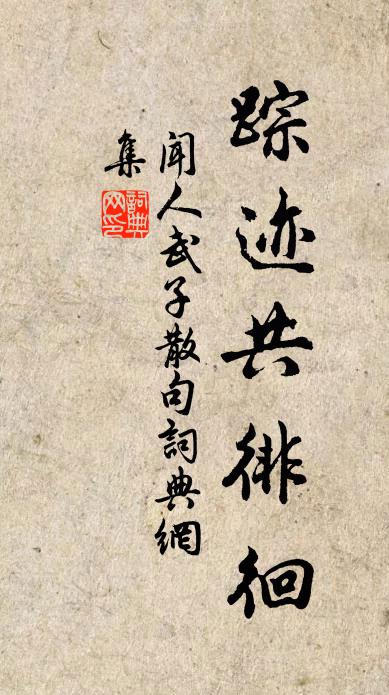 踪迹共徘徊
闻人武子散句詞典網
集
詞典
网印